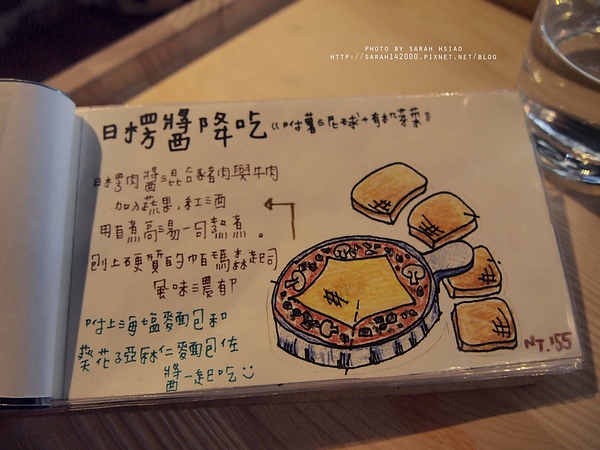 PHOTO BY SARAH HSIAO
HTTP://SARAH142000.PIXNET.NET/BLOG
日楞醬降吃《附薯泥球+有機芽菜》
日楞肉醬混合豬肉與牛肉
加入蔬果、紅酒
用自煮高湯一同熬煮。
刨上硬質的帕瑪森起司
風味濃郁
附上海塩麵包和
葵花子亞麻仁麵包佐
醬一起吃
NT.155